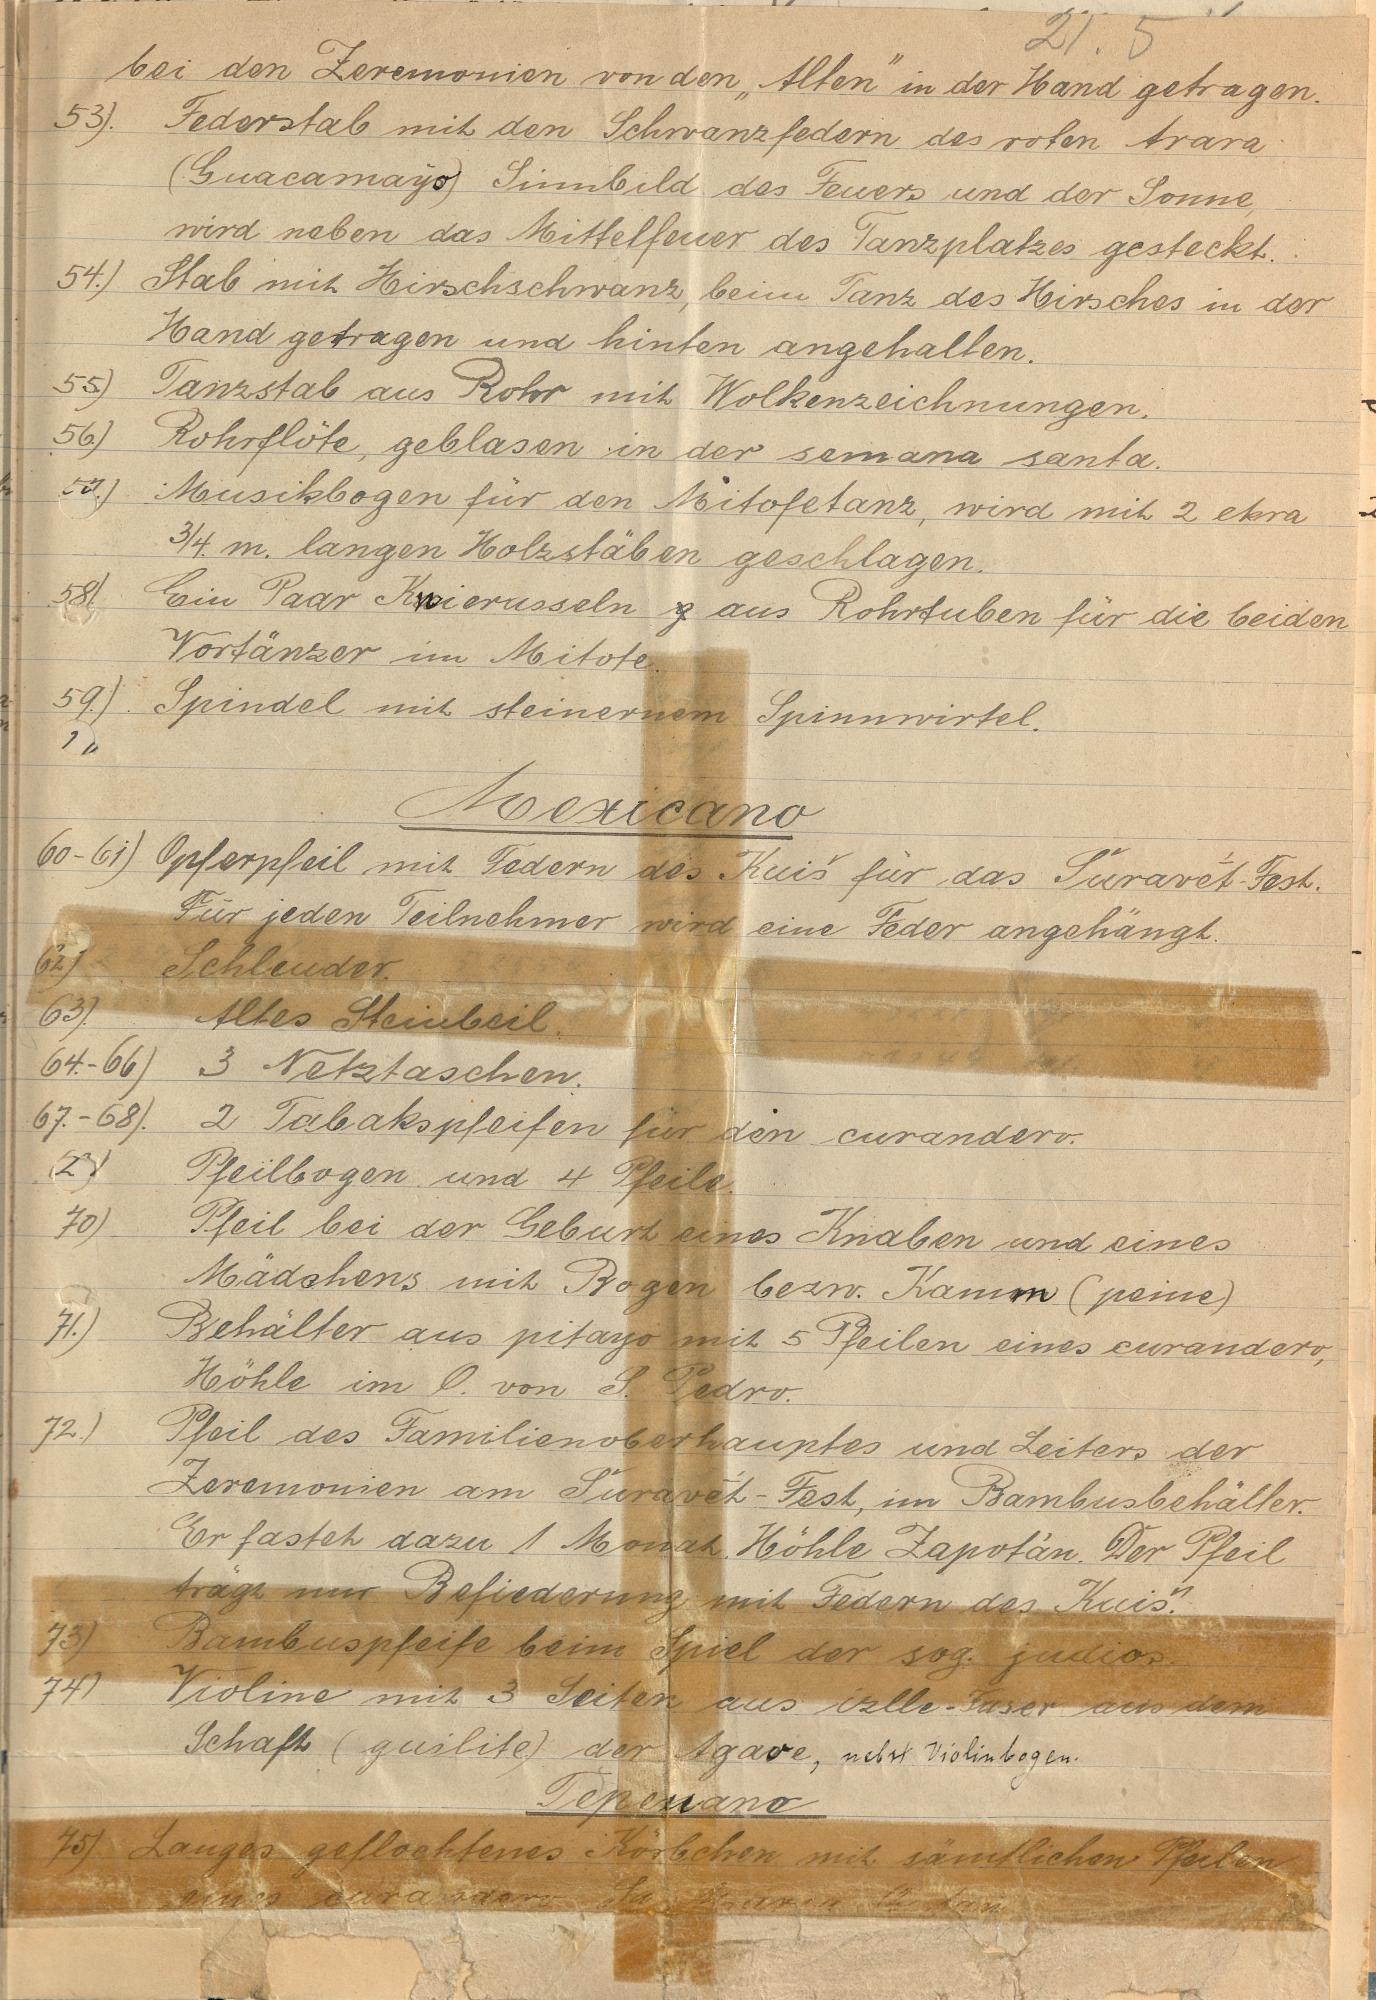 21. 5
bei den Zeremonien von den „Alten" in der Hand getragen.
53). Federstab mit den Schwanzfedern des roten Arara
(Guacamayo) Sinnbild des Feuers und der Sonne,
wird neben das Mittelfeuer des Tanzplatzes gesteckt.
54.) Stab mit Hirschschwanz, beim Tanz des Hirsches in der
Hand getragen und hinten angehalten.
55.) Tanzstab aus Rohr mit Wolkenzeichnungen.
56.) Rohrflöte, geblasen in der semana santa.
57.) Musikbogen für den Mitotetanz, wird mit 2 etwa
3/4 m. langen Holzstäben geschlagen.
58) Ein Paar Knierasseln aus Rohrtuben für die beiden
Vortänzer im Mitote.
59.) Spindel mit steinernem Spinnwirtel.
Mexicano
60-61) Opferpfeil mit Federn des Kuiš für das Šuravét-Fest.
Für jeden Teilnehmer wird eine Feder angehängt.
62) Schleuder.
63). Altes Steinbeil.
64.-66) 3 Netztaschen.
67.-68). 2 Tabakspfeifen für den curandero.
Pfeilbogen und 4 Pfeile.
70) Pfeil bei der Geburt eines Knaben und eines
Mädchens mit Bogen bezw. Kamm (peine)
71.) Behälter aus pitayo mit 5 Pfeilen eines curandero,
Höhle im O. von S. Pedro.
72.) Pfeil des Familienoberhauptes und Leiters der
Zeremonien am Šuravét-Fest, im Bambusbehälter.
Er fastet dazu 1 Monat. Höhle Zapotán. Der Pfeil
trägt nur Befiederung mit Federn des Kuiš.
73) Bambuspfeife beim Spiel der sog. judios.
74) Violine mit 3 Seiten aus ixtle-Faser aus dem
Schaft (quilite) der Agave, nebst Violinbogen.
Tepeuano
75) Langes geflochtenes Körbchen mit sämtlichen Pfeilen
eines curandero